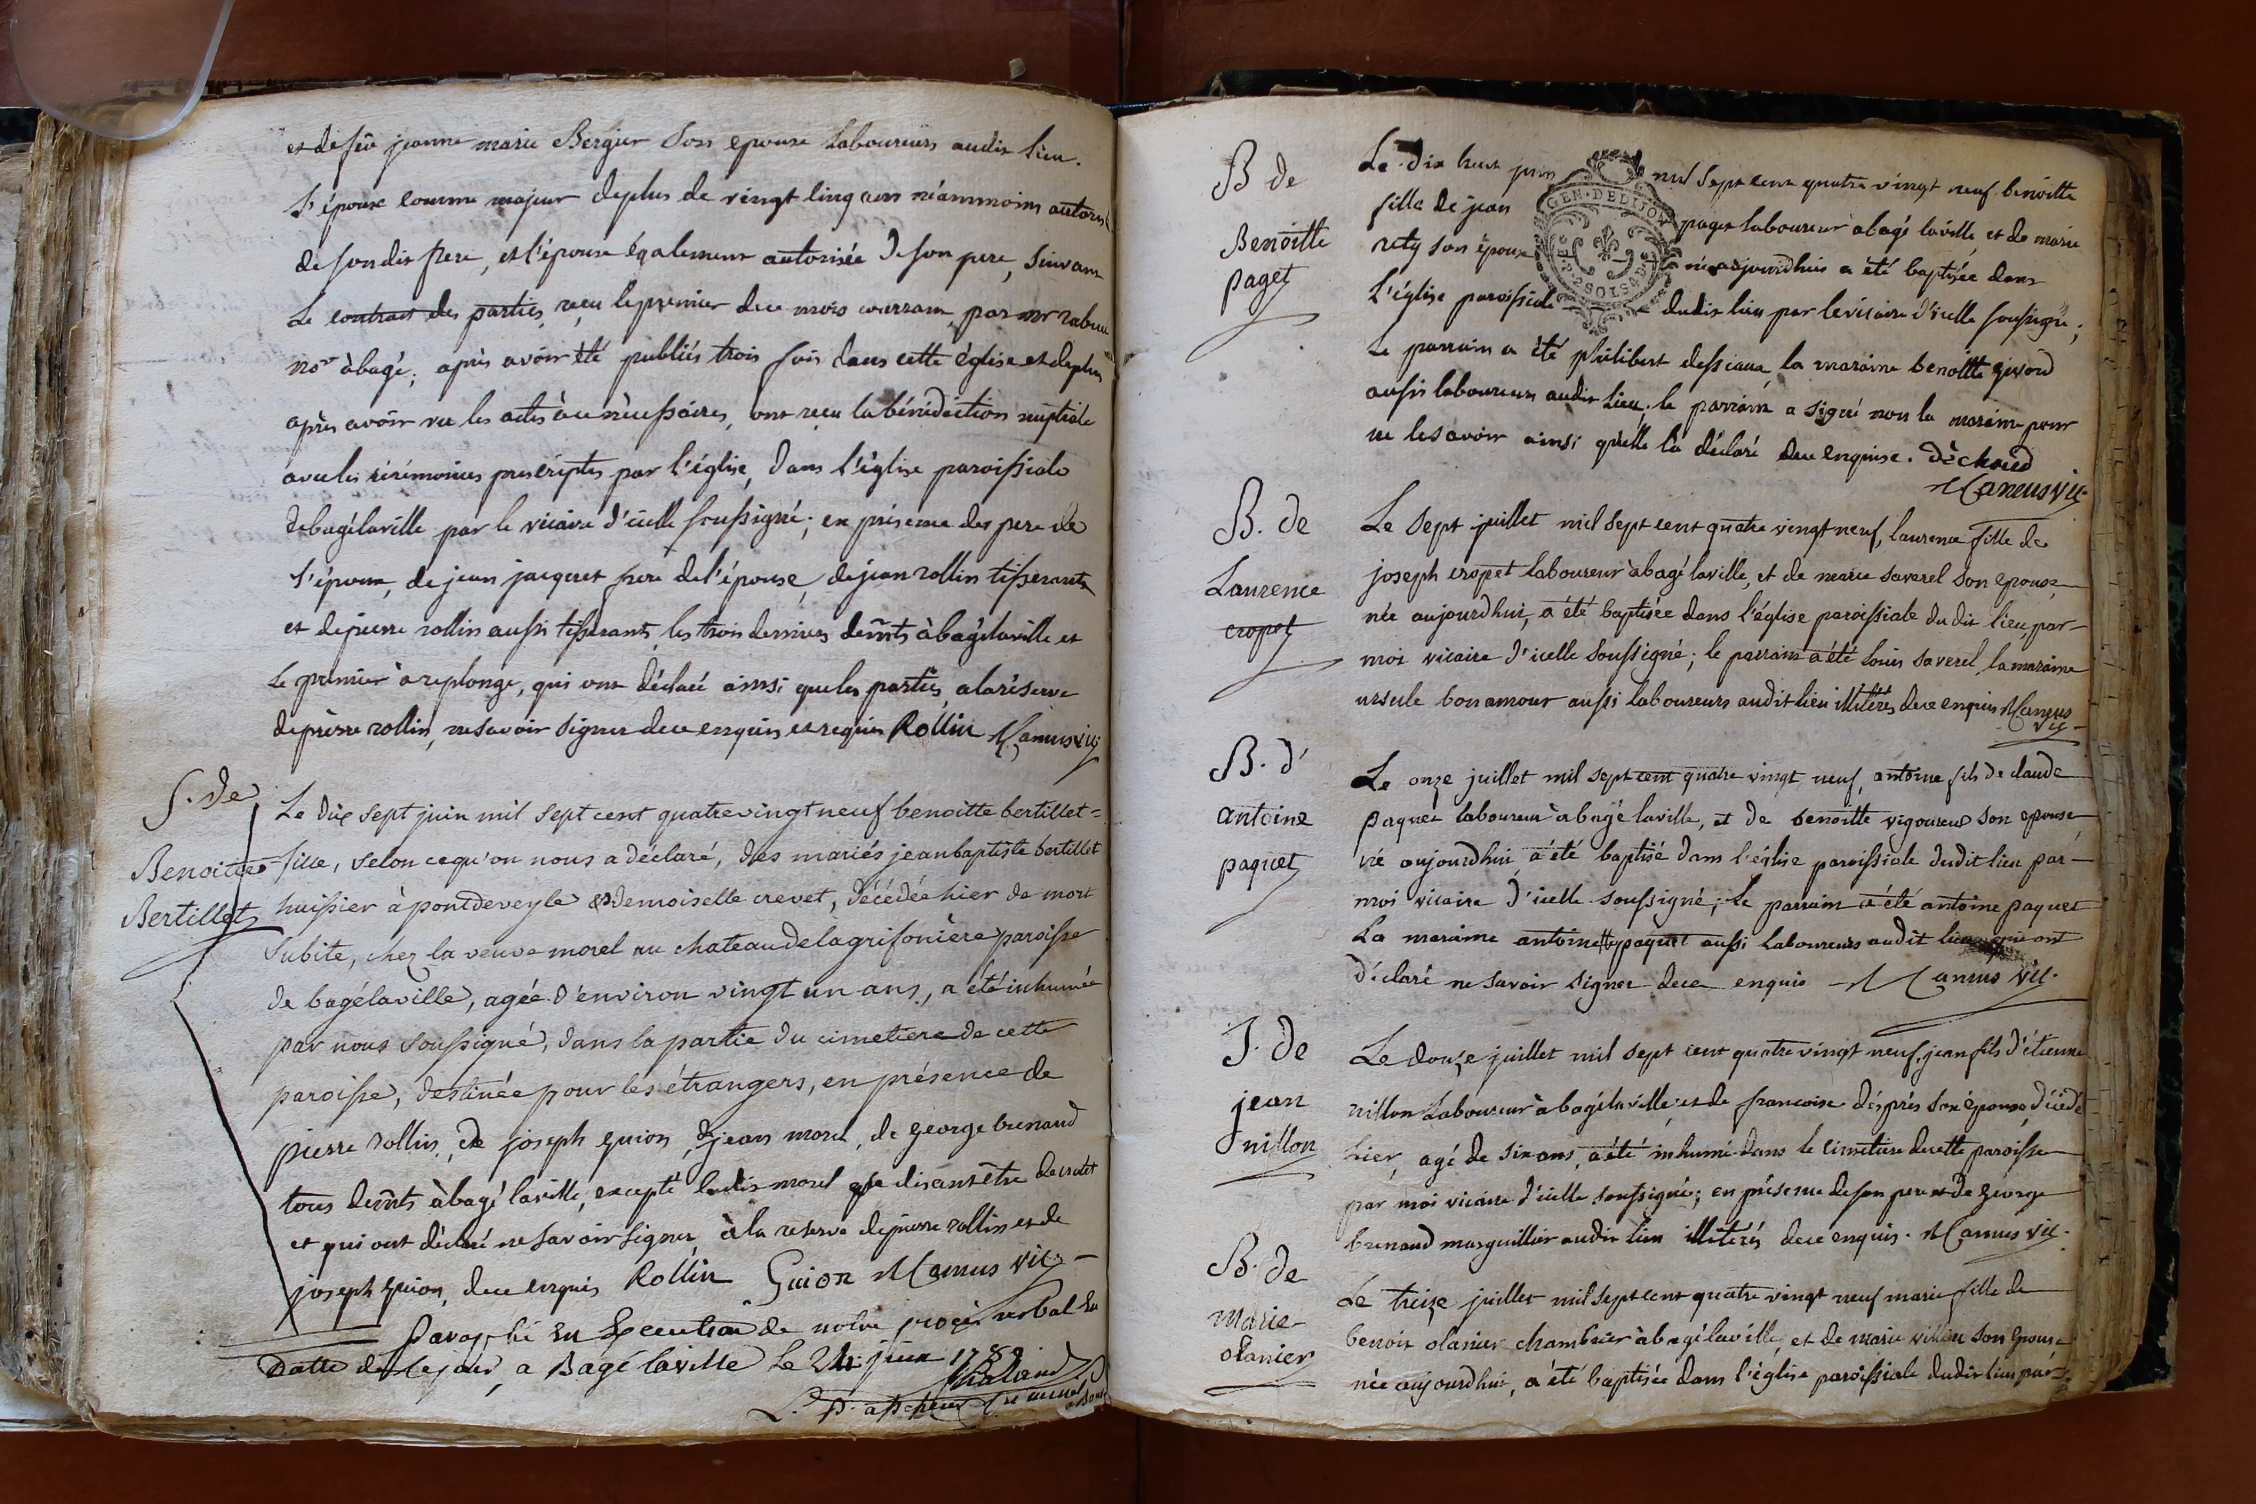 et de feüe jeanne marie Bergier son epouse laboureurs audit lieu.
L'époux comme majeur deplus de vingt cinq ans néammoins autorisé
de son dit frere, et l'épouse également autorisée de son pere, suivant
Le contract des parties, reçu le premier dece mois courrant, par mr rabuel
nore àbagé; après avoir été publiés trois fois dans cette église et deplus
après avoir vu les actes àce nécessaires, ont reçu la bénédiction nuptiale
avec les cérémonies prescriptes par l'église, dans l'église paroissiale
debagélaville par le vicaire d'icelle soussigné; en présence des pere de
l'épouse, de jean jacquet frere de l'épouse, de jean rollin tisserants
et depierre rollin aussi tisserants, les trois derniers demts àbagélaville et
Le premier àreplonge, qui ont déclaré ainsi que les parties, alaréserve
depierre rollin, ne savoir signer dece enquis et requis Rollin Camus vic
S. de
Benoitte
Bertillet
Le dix sept juin mil sept cent quatrevingt neuf benoitte bertillet=
fille, selon cequ'on nous a déclaré, des mariés jeanbaptiste bertillet
huissier à pontdeveyle et demoiselle crevet, décédée hier de mort
subite, chez la veuve morel au chateau delagrifonière paroisse
de bagélaville, agée d'environ vingt un ans, a été inhumée
par nous soussigné, dans la partie du cimetiere de cette
paroisse, destinée pour les étrangers, en présence de
pierre rollin, de joseph guion, de jean morel, de george brenaud
tous demts àbagé laville, excepté ledit morel qse disant être de crotet
et qui ont déclaré ne savoir signer àla reserve depierre rollin et de
joseph guion, dece enquis Rollin Guion Camus vic
Paraphé en Execution de notre procès verbal en
Datte de ce jour, a Bagé laville Le 24 juin 1789
B de
Benoitte
paget
Le dix huit juin mil sept cent quatre vingt neuf benoitte
GEN. DE DIJON
fille de jean paget laboureur abagé laville et de marie
rety son épouse née aujourdhui a été baptisée dans
L'église paroissiale dudit lieu par levicaire d'icelle soussigné;
Le parrain a été philibert dessaux la maraine benoitte givord
aussi laboureurs audit Lieu. le parrain a signé non la maraine pour
ne lesavoir ainsi qu'elle l'a déclaré dece enquise. Déchaud
Camus vic
B. de
Laurence
cropet
Le sept juillet mil sept cent quatre vingt neuf, laurence fille de
joseph cropet laboureur àbagé laville, et de marie saverel son epouse
née aujourdhui, a été baptisée dans l'église paroissiale du dit lieu par
moi vicaire d'icelle soussigné; le parrain a été louis saverel la maraine
ursule bonamour aussi laboureurs audit lieu illitérés dece enquis Camus
vic
B. d'
antoine
paquet
Le onze juillet mil sept cent quatre vingt neuf, antoine fils de claude
paquet laboureur àbagé laville, et de benoitte vigoureux son epouse
né aujourdhui, a été baptisé dans l'église paroissiale dudit lieu par
moi vicaire d'icelle soussigné; Le parrain a été antoine paquet
La maraine antoinette paquet aussi laboureurs audit lieu qui ont
déclaré ne savoir signer dece enquis Camus vic
S. de
jean
nillon
Le douze juillet mil sept cent quatre vingt neuf, jean fils d'étienne
nillon Laboureur àbagélaville, et de francoise després son épouse, décédé
hier, agé de six ans, a été inhumé dans le cimetiere decette paroisse
par moi vicaire d'icelle soussigné; en présence deson pere et de George
brenaud marguillier audit lieu illitérés dece enquis. Camus vic
B. de
Marie
olanier
Le treize juillet mil sept cent quatre vingt neuf marie fille de
benoit olanier chambrier àbagélaville, et de marie villon son epouse
née aujourdhui, a été baptisée dans l'église paroissiale dudit lieu par